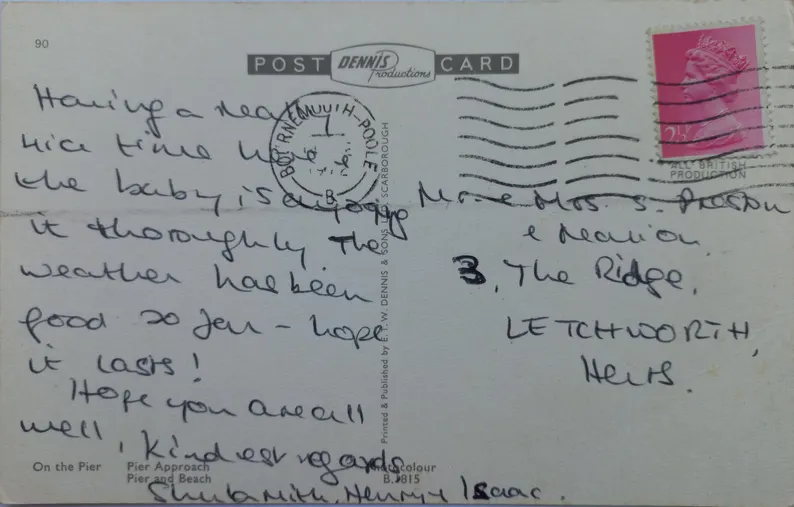 90
POST DENNIS Productions CARD
Having a really
nice time here
the baby is enjoying
it thoroughly The
weather has been
good so far - hope
it lasts!
Hope you are all
well, Kindest regards
Shulamith, Henry + Isaac.
BOURNEMOUTH-POOLE
B
2½
ALL BRITISH
PRODUCTION
Mr. & Mrs. S. Preston
& Marion
3, The Ridge,
LETCHWORTH,
Herts.
Printed & Published by E. T. W. DENNIS & SONS LTD., SCARBOROUGH
On the Pier
Pier Approach
Pier and Beach
B.1815